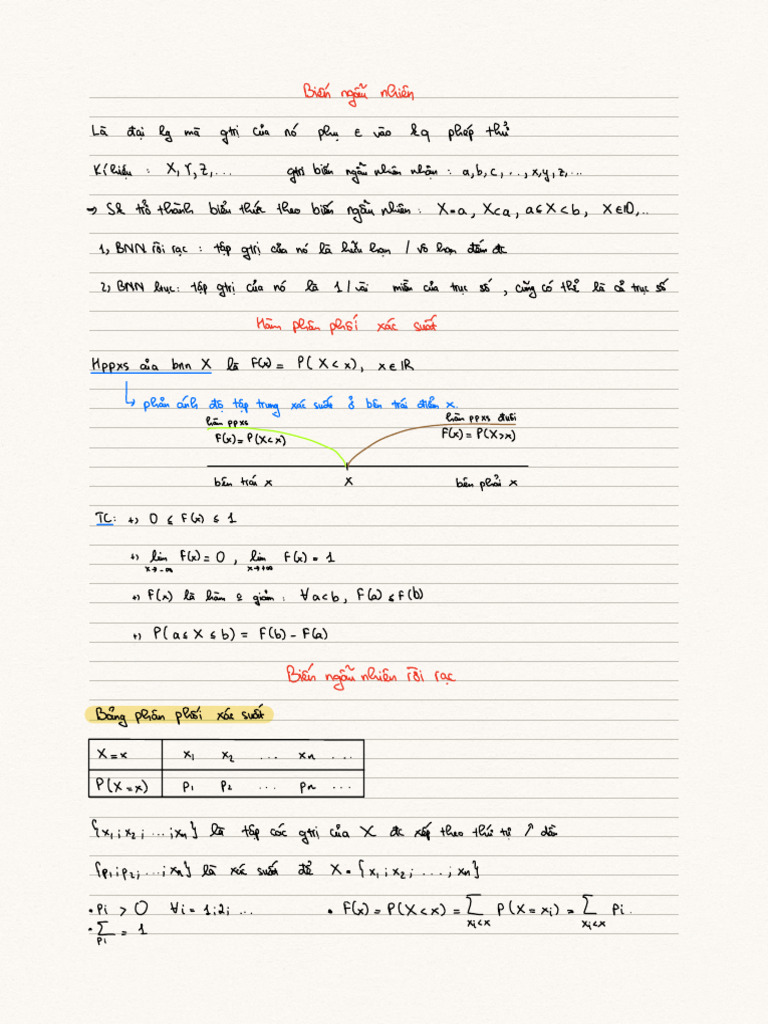 Biến ngẫu nhiên
Là đại lg mà gtrị của nó phụ ∈ vào kq phép thử
Kí hiệu : X, Y, Z, ... gtrị biến ngẫu nhiên nhận : a, b, c, ..., x, y, z, ...
→ Sk trở thành biểu thức theo biến ngẫu nhiên : X=a, X<a, a≤X<b, X∈D,..
1, BNN rời rạc : tập gtrị của nó là hữu hạn / vô hạn đếm đc
2, BNN ltục: tập gtrị của nó là 1/vài miền của trục số, cũng có thể là cả trục số
Hàm phân phối xác suất
Hppxs của bnn X là F(x) = P(X<x), x∈ℝ
↳ phản ánh độ tập trung xác suất ở bên trái điểm x.
hàm ppxs
F(x)=P(X<x)
hàm ppxs đuôi
F(x)=P(X>x)
bên trái x x bên phải x
TC: +) 0 ≤ F(x) ≤ 1
+) lim x→-∞ F(x)=0, lim x→+∞ F(x)=1
+) F(x) là hàm o giảm : ∀a<b, F(a)≤F(b)
+) P(a≤X≤b) = F(b)-F(a)
Biến ngẫu nhiên rời rạc
Bảng phân phối xác suất
X=x x₁ x₂ ... xn ...
P(X=x) p₁ p₂ ... pn ...
{x₁;x₂;...;xn} là tập các gtrị của X đc xếp theo thứ tự ↗ dần
{p₁;p₂;...;xn} là xác suất để X={x₁;x₂;...;xn}
• Pi > 0 ∀i=1;2; ... • F(x)=P(X<x)=∑ xi<x P(X=xi)=∑ xi<x Pi.
• ∑ pi = 1